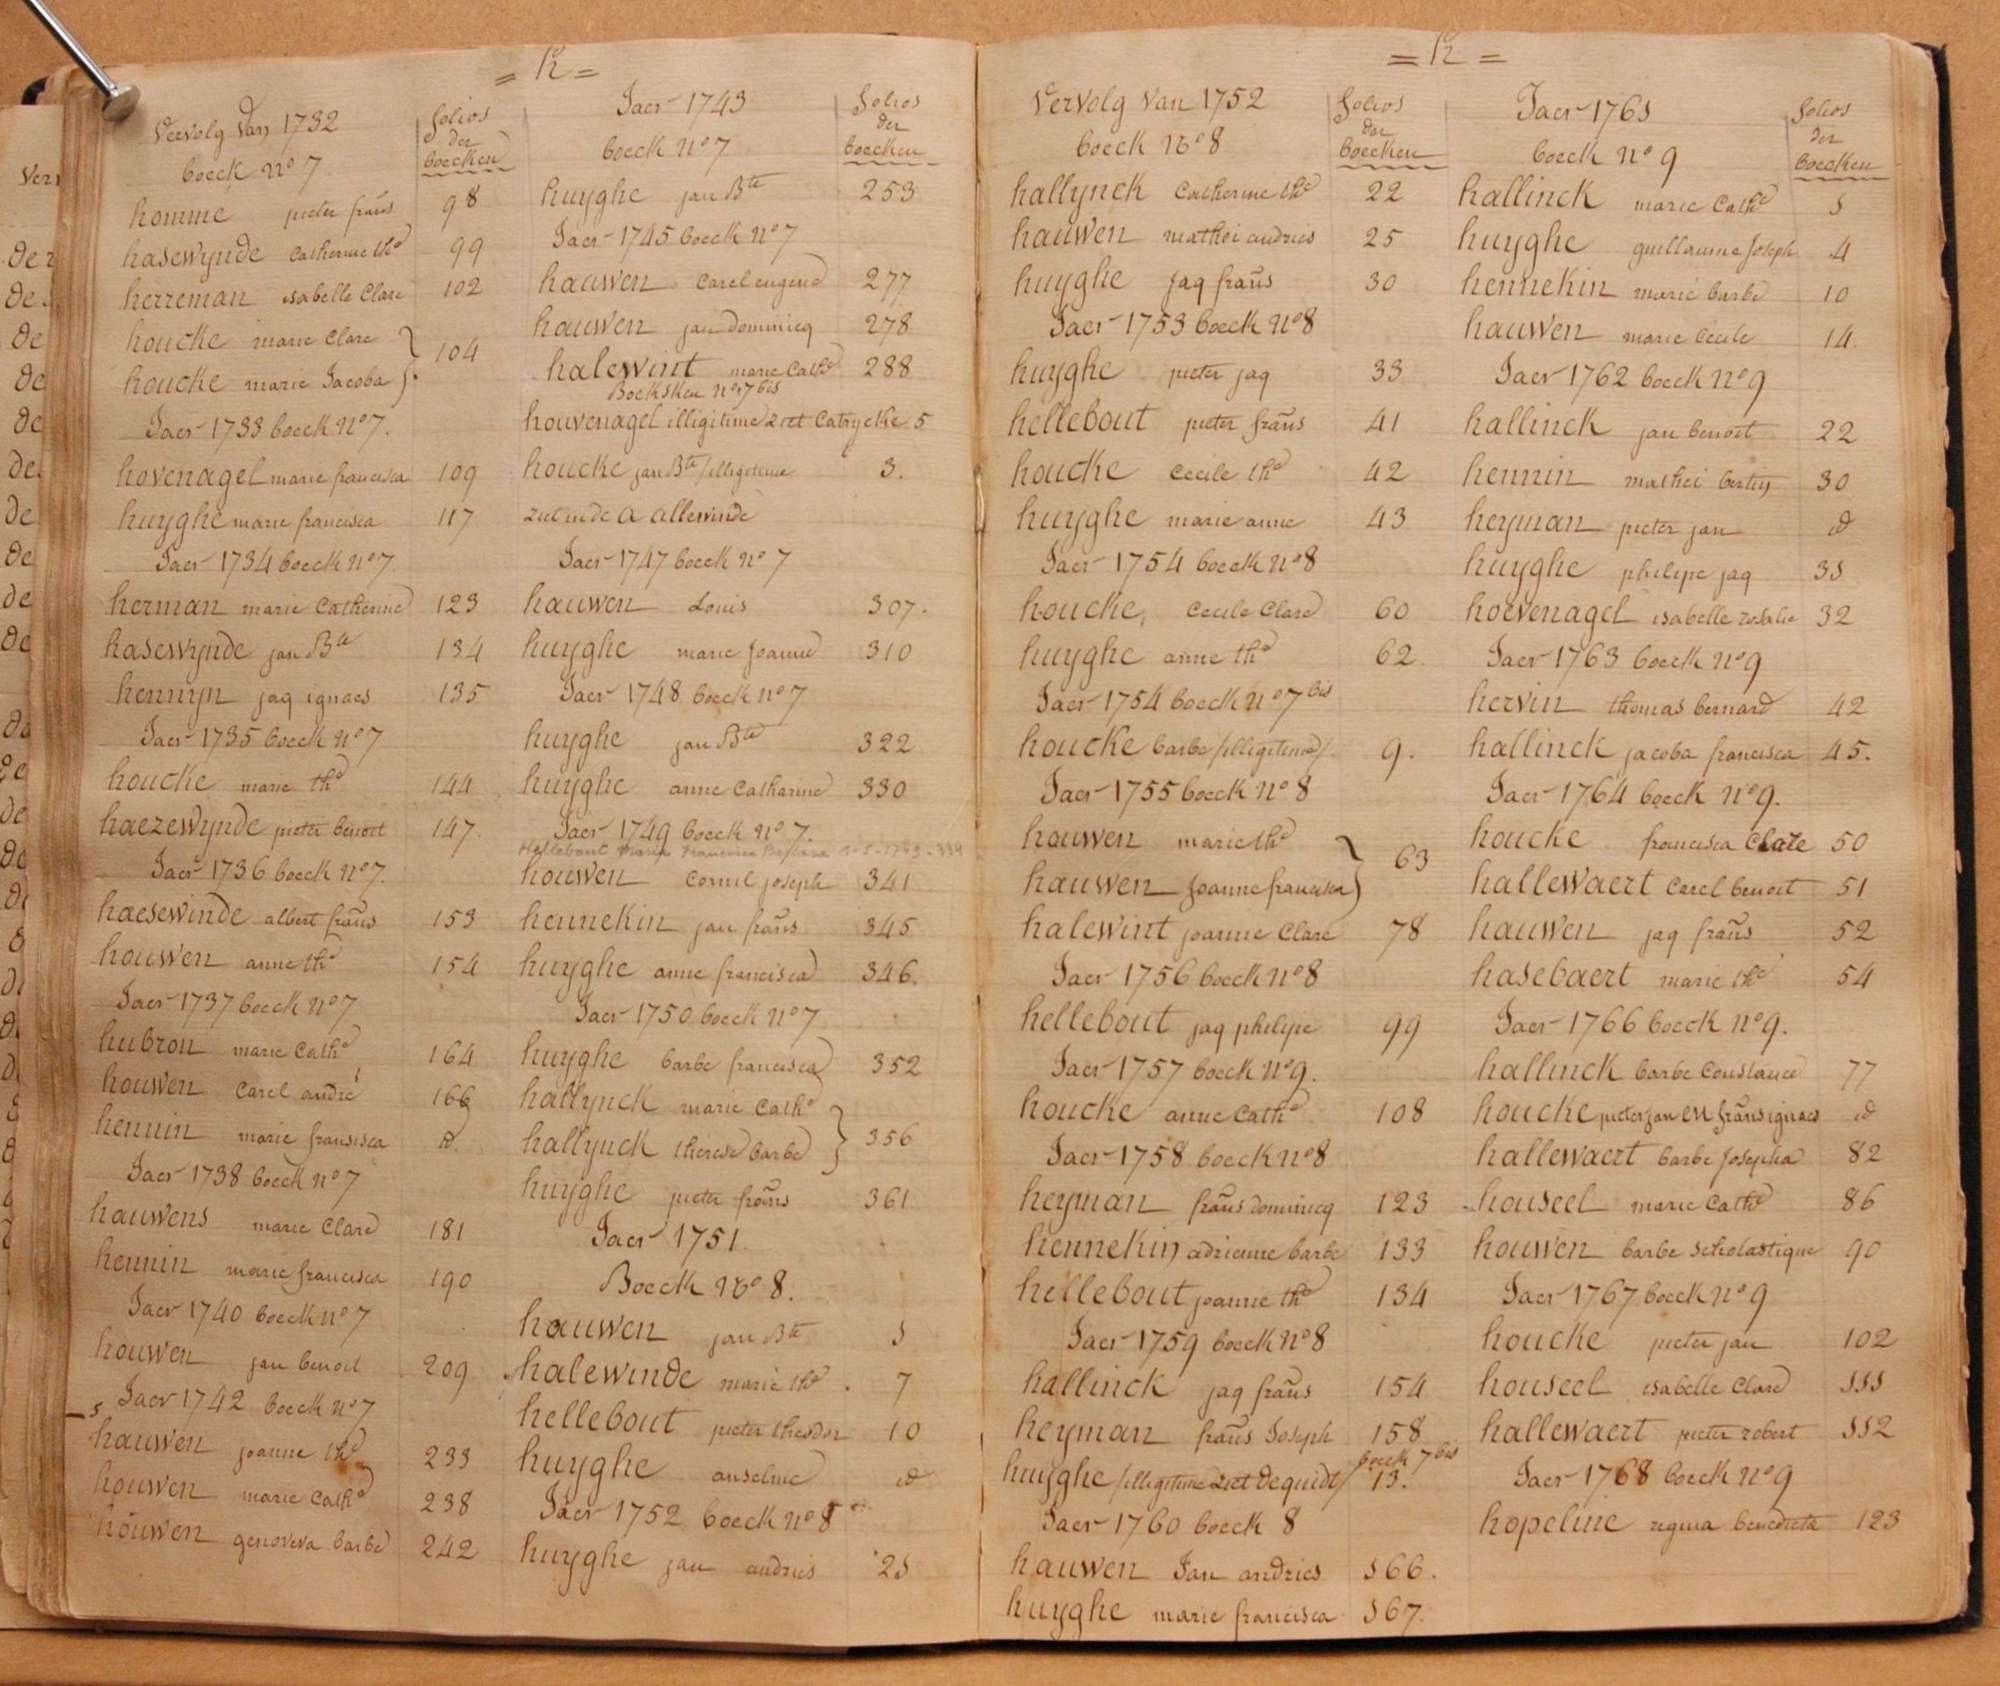 = h =
Vervolg van 1732
boeck no 7
folios
der
boecken
homme pieter frans 98
hasewynde Catherine the 99
herreman isabelle Clare 102
houcke marie Clare
houcke marie Jacoba } 104
Jaer 1733 boeck no 7.
hovenagel marie francisca 109
huyghe marie francisca 117
Jaer 1734 boeck no 7
herman marie Catherine 123
hasewynde jan Bte 134
hennyn jaq ignaes 135
Jaer 1735 boeck no 7
houcke marie the 144
haezewynde pieter benoit 147.
Jaer 1736 boeck no 7.
haesewinde albert frans 153
houwen anne the 154
Jaer 1737 boeck no 7
hubron marie Cathe 164
houwen Carel andré 166
hennin marie fransisca id.
Jaer 1738 boeck no 7
hauwens marie Clare 181
hennin marie francisca 190
Jaer 1740 boeck no 7
houwen jan benoit 209
Jaer 1742 boeck no 7
hauwen joanne the 233
houwen marie Cathe 238
houwen genoveva barbe 242
Jaer 1743
boeck no 7
folios
der
boecken
huyghe jan Bte 253
Jaer 1745 boeck no 7
hauwen Carel eugene 277
hauwen jan dominicq 278
halewint marie Cathe 288
Boeksken no 7 bis
houvenagel illigitime ziet Catrycke 5
houcke jan Bte /illegitime 3.
ziet in de a allewinde
Jaer 1747 boeck no 7
hauwen Louis 307.
huyghe marie Joanne 310
Jaer 1748 boeck no 7
huyghe jan Bte 322
huyghe anne Catharine 330
Jaer 1749 boeck no 7.
Hellebout Maria Francisca
houwen Cornil joseph 341
hennekin jan frans 345
huyghe anne francisca 346.
Jaer 1750 boeck no 7
huyghe barbe francisca 352
hallynck marie Cathe
hallynck therese barbe } 356
huyghe pieter frans 361.
Jaer 1751
Boeck No 8.
hauwen jan Bte 1
halewinde marie the . 7
hellebout pieter theodor 10
huyghe anselme id
Jaer 1752 boeck no 8
huyghe jan andries 21
= h =
Vervolg van 1752
boeck No 8
folios
der
boecken
hallynck Catherine the 22
hauwen mathei andries 25
huyghe jaq frans 30
Jaer 1753 boeck no 8
huyghe pieter jaq 33
hellebout pieter frans 41
houcke Cecile the 42
huyghe marie anne 43
Jaer 1754 boeck no 8
houcke, Cecile Clare 60
huyghe anne the 62
Jaer 1754 boeck no 7 bis
houcke barbe /illigitime/ 9.
Jaer 1755 boeck no 8
hauwen marie the
hauwen Joanne francisca } 63
halewint joanne Clare 78
Jaer 1756 boeck no 8
hellebout jaq philipe 99
Jaer 1757 boeck no 9.
houcke anne Cathe 108
Jaer 1758 boeck no 8
heyman frans dominicq 123
hennekin adrienne barbe 133
hellebout joanne the 134
Jaer 1759 boeck no 8
hallinck jaq frans 154
heyman frans Joseph 158
boeck 7 bis
huyghe /illigitime ziet dequidt/ 13.
Jaer 1760 boeck 8
hauwen Jan andries 166.
huyghe marie francisca 167.
Jaer 1761
boeck no 9
folios
der
boecken
hallinck marie Cathe 1
huyghe guillaume Joseph 4
hennekin marie barbe 10
hauwen marie Cecile 14.
Jaer 1762 boeck no 9
hallinck jan benoit 22
hennin mathei bertin 30
heyman pieter jan id
huyghe philipe jaq 31
hoevenagel isabelle rosalie 32
Jaer 1763 boeck no 9
hervin thomas bernard 42
hallinck jacoba francisca 45.
Jaer 1764 boeck no 9.
houcke francisca Clare 50
hallewaert Carel benoit 51
hauwen jaq frans 52
hasebaert marie the 54
Jaer 1766 boeck no 9.
hallinck barbe Constance 77
houcke pieter jan en frans ignaes id
hallewaert barbe Josepha 82
houseel marie Cathe 86
houwen barbe scholastique 90
Jaer 1767 boeck no 9
houcke pieter jan 102
houseel isabelle Clare 111
hallewaert pieter robert 112
Jaer 1768 boeck no 9
hopeline regina benedicta 123